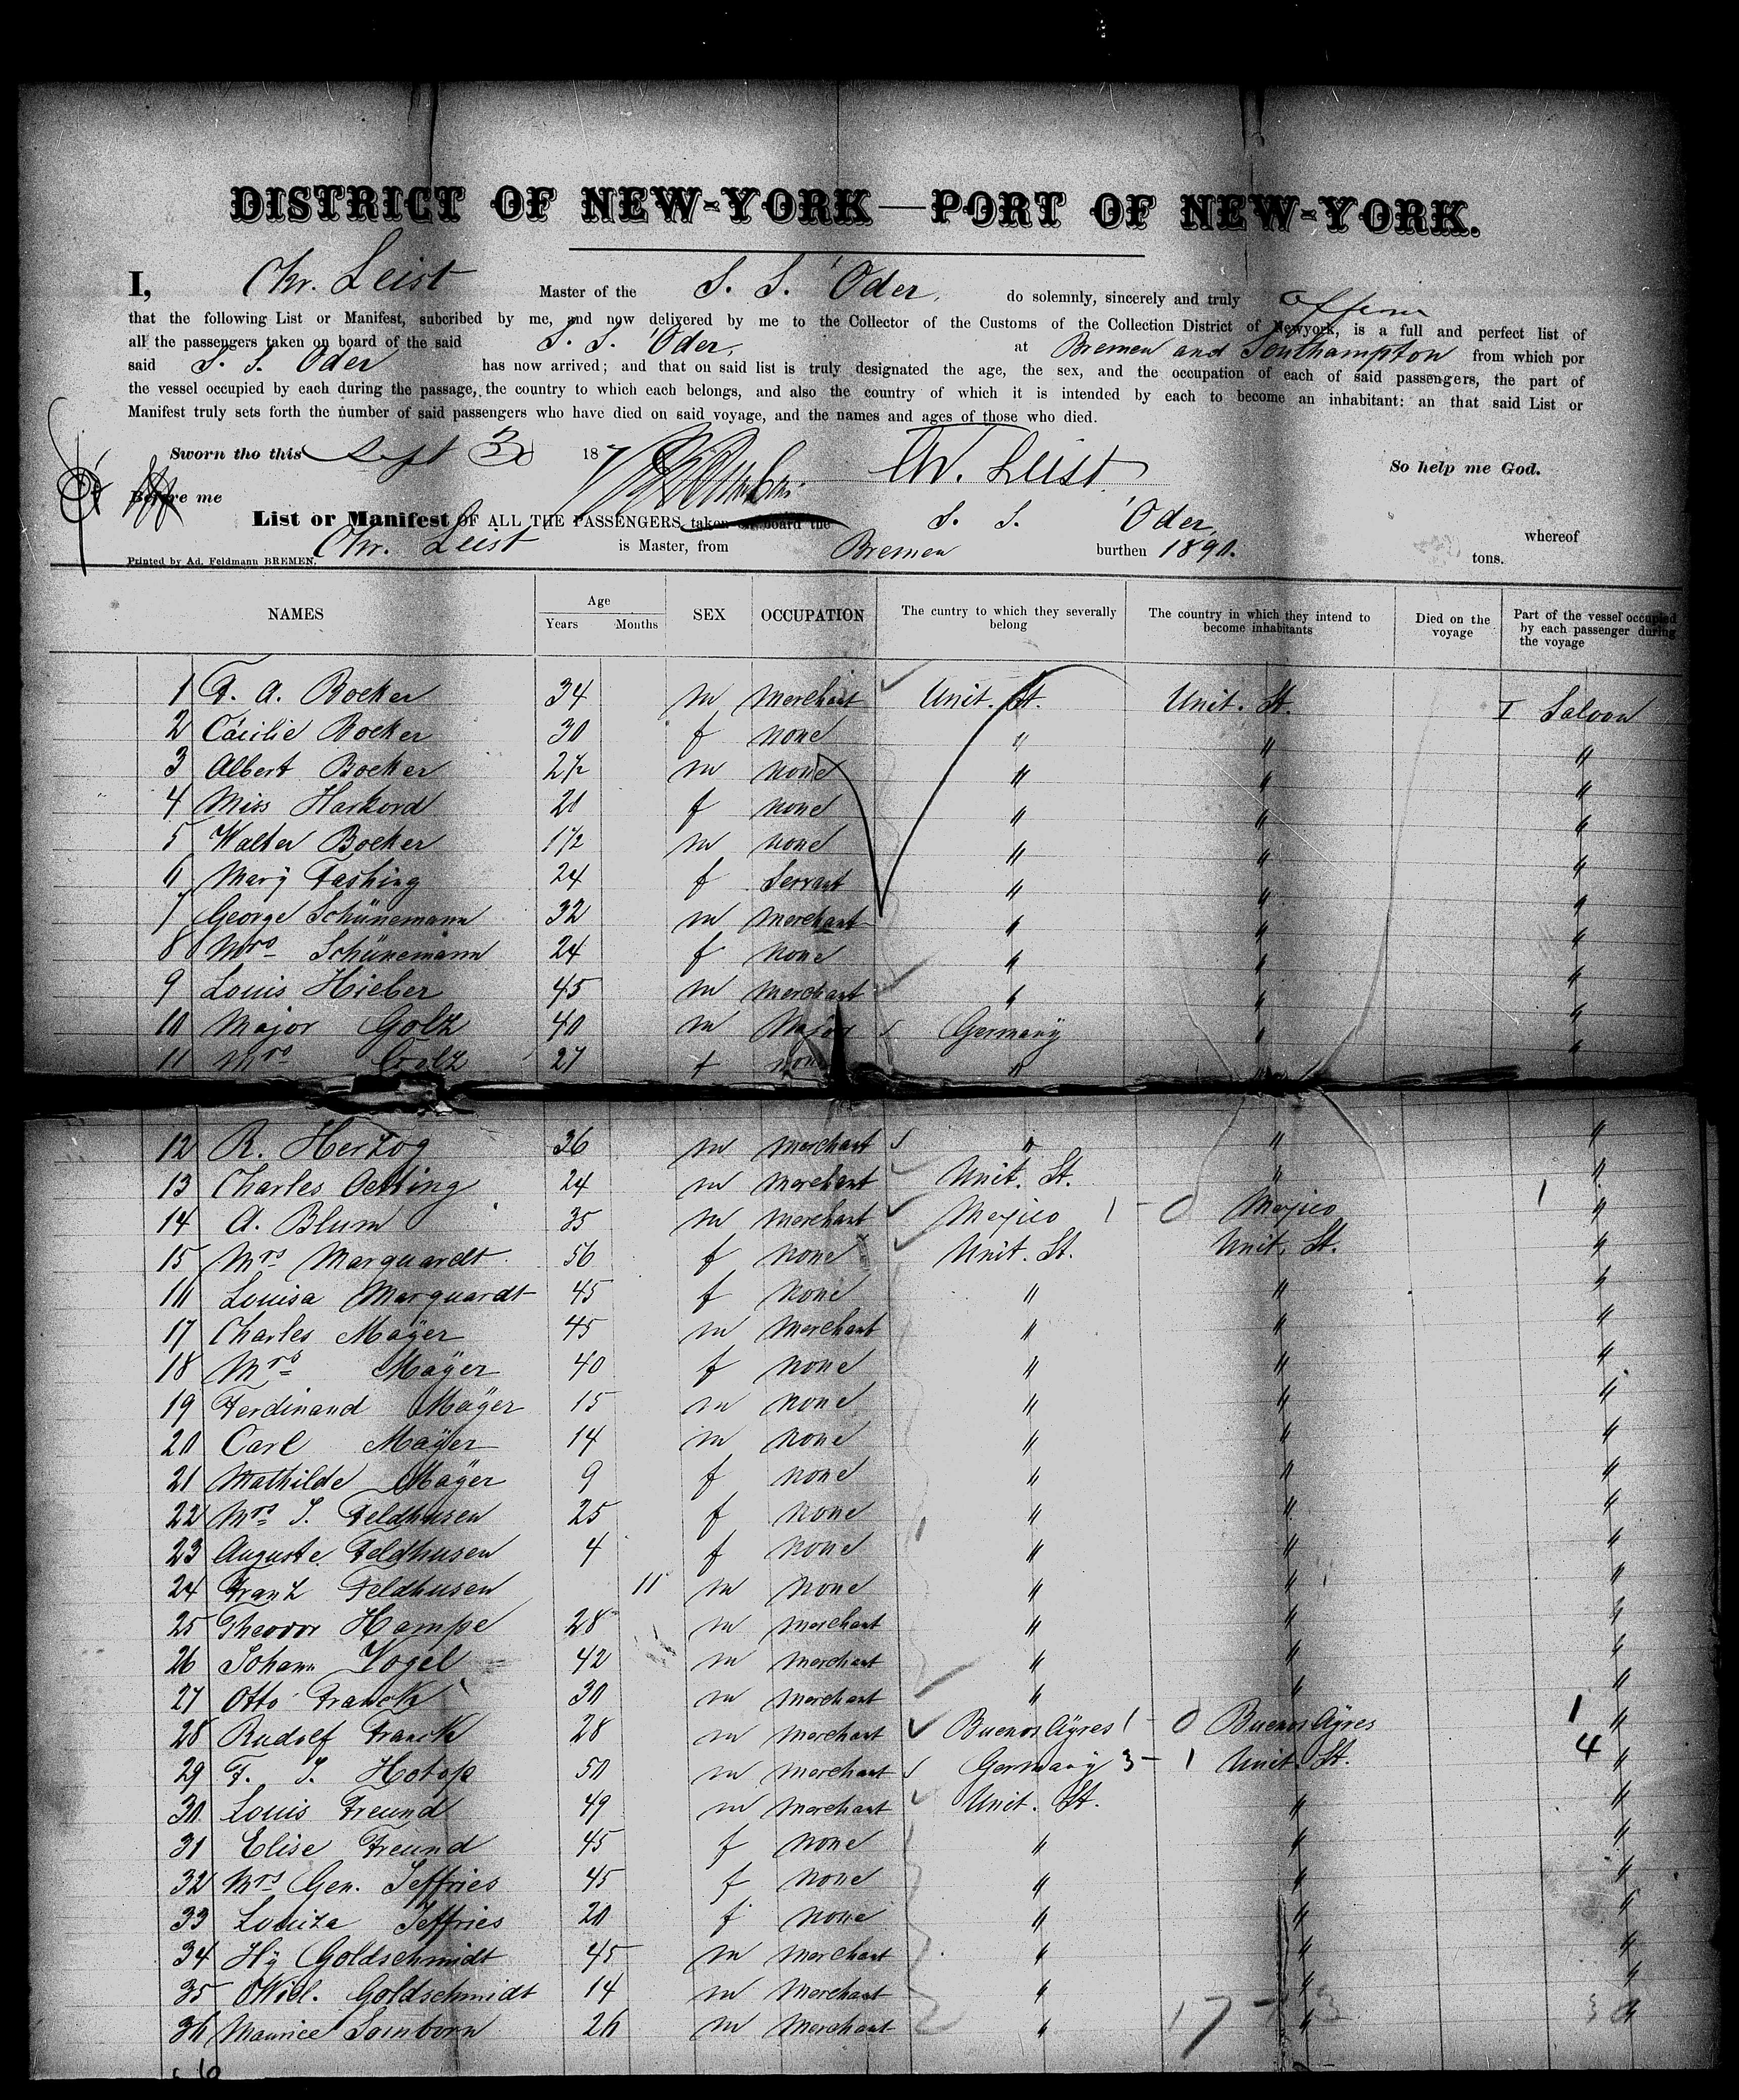 DISTRICT OF NEW-YORK—PORT OF NEW-YORK.
I, Chr. Leist Master of the S. S. Oder, do solemnly, sincerely and truly affirm
that the following List or Manifest, subcribed by me, and now delivered by me to the Collector of the Customs of the Collection District of Newyork, is a full and perfect list of
all the passengers taken on board of the said S. S. Oder, at Bremen and Southampton from which por
said S. S. Oder has now arrived; and that on said list is truly designated the age, the sex, and the occupation of each of said passengers, the part of
the vessel occupied by each during the passage, the country to which each belongs, and also the country of which it is intended by each to become an inhabitant: an that said List or
Manifest truly sets forth the number of said passengers who have died on said voyage, and the names and ages of those who died.
Sworn tho this Sept 30 187 Chr. Leist So help me God.
Before me
List or Manifest OF ALL THE PASSENGERS taken on board the S. S. Oder, whereof
Chr. Leist is Master, from Bremen burthen 1890. tons.
Printed by Ad. Feldmann BREMEN.
NAMES Age Years Months SEX OCCUPATION The cuntry to which they severally belong The country in which they intend to become inhabitants Died on the voyage Part of the vessel occupied by each passenger during the voyage
1 F. A. Boeker 34 m merchant Unit. St. Unit. St. I Saloon
2 Cäcilie Boeker 30 f none " " "
3 Albert Boeker 2½ m none " " "
4 Miss Harkord 21 f none " " "
5 Walter Boeker 1½ m none " " "
6 Mary Fashing 24 f Servant " " "
7 George Schünemann 32 m merchant " " "
8 Mrs Schünemann 24 f none " " "
9 Louis Hieber 45 m merchant " " "
10 Major Golz 40 m Major Germany " "
11 Mrs Golz 27 f none " "
12 R. Herzog 36 m merchant " " "
13 Charles Oetting 24 m merchant Unit. St. " "
14 A. Blum 35 m merchant Mejico 1 - 0 Mejico 1 "
15 Mrs Marquardt 56 f none Unit. St. Unit. St. "
16 Louisa Marquardt 45 f none " " "
17 Charles Mayer 45 m merchant " " "
18 Mrs Mayer 40 f none " " "
19 Ferdinand Mayer 15 m none " " "
20 Carl Mayer 14 m none " " "
21 Mathilde Mayer 9 f none " " "
22 Mrs J. Feldhusen 25 f none " " "
23 Auguste Feldhusen 4 f none " " "
24 Franz Feldhusen 11 m none " " "
25 Theodor Hampe 28 m merchant " " "
26 Johann Vogel 42 m merchant " " "
27 Otto Franck 30 m merchant " " "
28 Rudolf Franck 28 m merchant Buenos Ayres 1 - 0 Buenos Ayres 1 "
29 F. J. Hotop 50 m merchant Germany 3 - 1 Unit. St. 4 "
30 Louis Freund 49 m merchant Unit. St. " "
31 Elise Freund 45 f none " " "
32 Mrs Gen. Jeffries 45 f none " " "
33 Louiza Jeffries 20 f none " " "
34 Hy Goldschmidt 45 m merchant " " "
35 Goldschmidt 14 m merchant " " "
36 Maurice Sonnborn 26 m merchant " " "